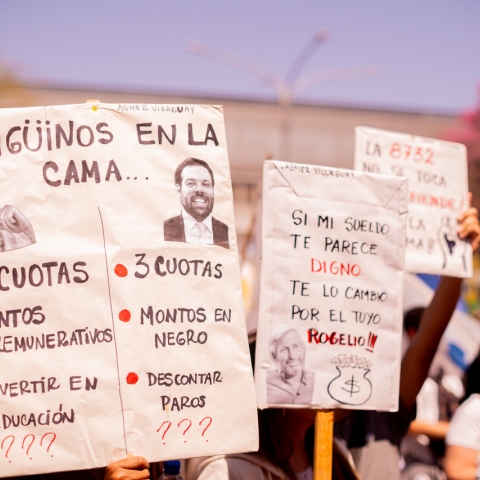 AGMER VILLAGUAY
IGÜINOS EN LA
CAMA...
CUOTAS
NTOS
REMUNERATIVOS
VERTIR EN
DUCACIÓN
???
3 CUOTAS
MONTOS EN
NEGRO
DESCONTAR
PAROS
???
AGMER VILLAGUAY
SI MI SUELDO
TE PARECE
DIGNO
TE LO CAMBIO
POR EL TUYO
ROGELIO!!
$
LA 8732
NO SE TOCA
LA